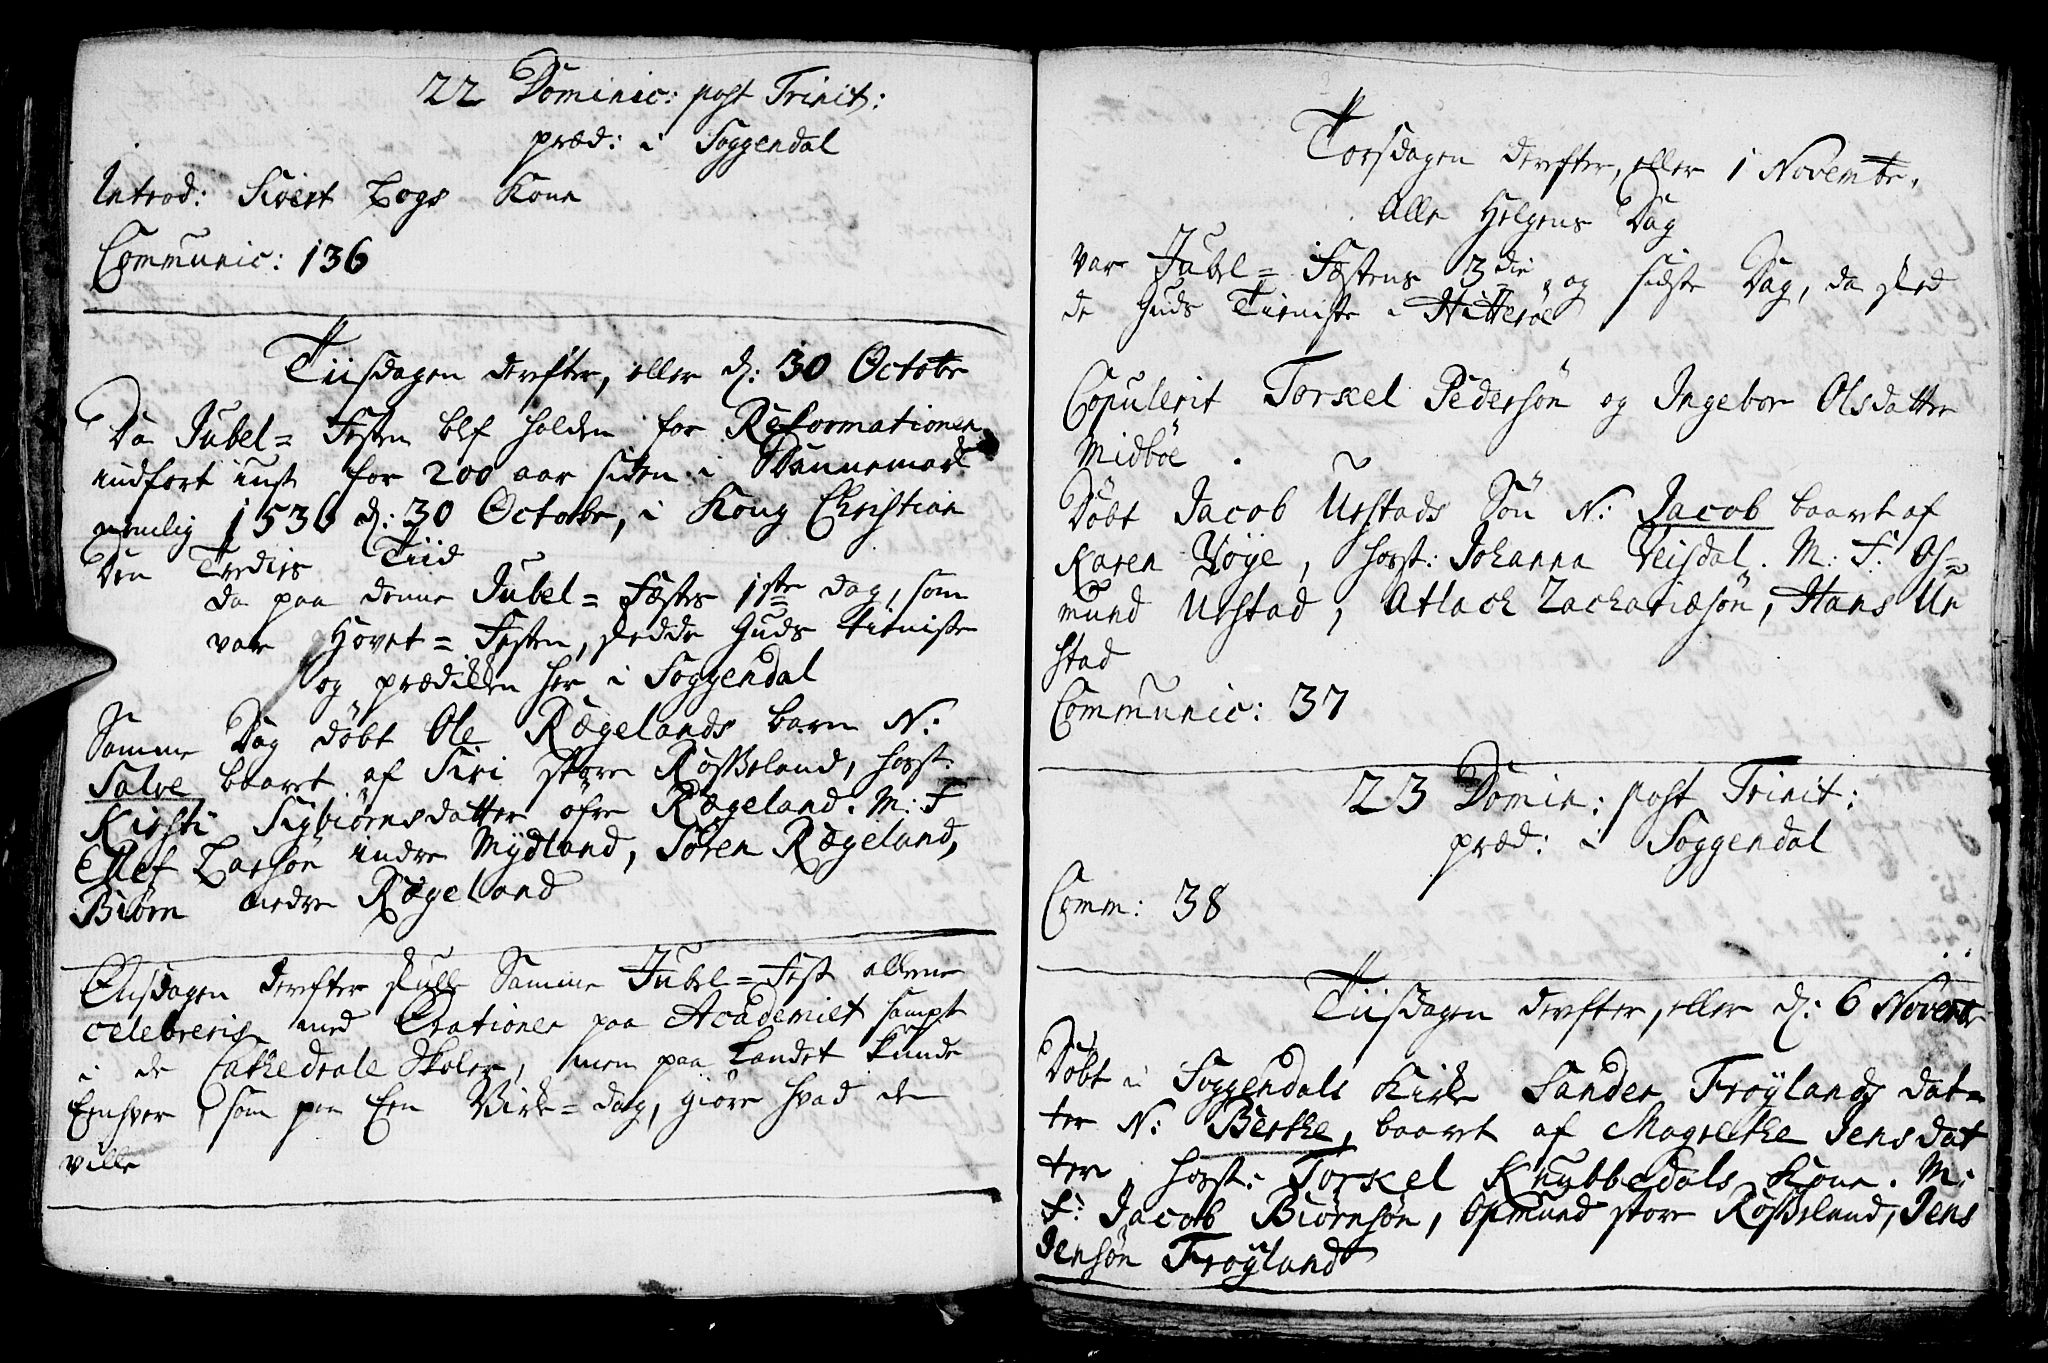 22 Dominic: post Trinit:
præd: i Soggendal
Introd: Sivert Logs Kone
Communic: 136
Tiisdagen derefter, eller d: 30 Octobr
Da Jubel= Festen blef holden for Reformationen
indfört just for 200 aar siden i Dannemark
nemlig 1536 d: 30 Octobr, i Kong Christian
Den Tredies Tiid
da paa denne Jubel= Festes 1ste dag, som
var Hovet= Festen, skedde Guds tieniste
og prædikken her i Soggendal
Samme Dag döbt Ole Rægelands barn N:
Salve baaret af Siri store Røssland, host:
Kirsti Sigbiörnsdatter öfre Rægeland. M: F
Ellef Larsön indre Mydland, Sören Rægeland,
Biörn nedre Rægeland
Onsdagen derefter skulle Samme Jubel= Fest allene
celebreris med Orationer paa Academiet sampt
i de Cathedrale Skoler, men paa Landet kunde
Eenhver, som paa Een Virke= dag, giöre hvad de
ville
Torsdagen derefter, eller 1 Novembr,
Alle Helgens Dag
var Jubel= Festens 3die og sidste Dag, da sked
de Guds Tieniste i Hitteröe
Copulerit Torkel Pedersön og Ingebor Olsdatter
Midböe
Döbt Jacob Urstads Sön N: Jacob baaret af
Karen Yöye, host: Johanna Veisdal. M: F: Os=
mund Urstad, Atlach Zachariæsön, Hans Ur
stad
Communic: 37
23 Domin: post Trinit:
præd: i Soggendal
Comm: 38
Tiisdagen derefter, eller d: 6 Novembr
Döbt i Soggendals Kirke Sander Fröylands dat=
ter N: Berthe, baaret af Magrethe Jensdat
ter, host: Torkel Knubbedals Kone. M:
F: Jacob Biörnsön, Osmund store Røssland, Jens
Jensön Fröyland